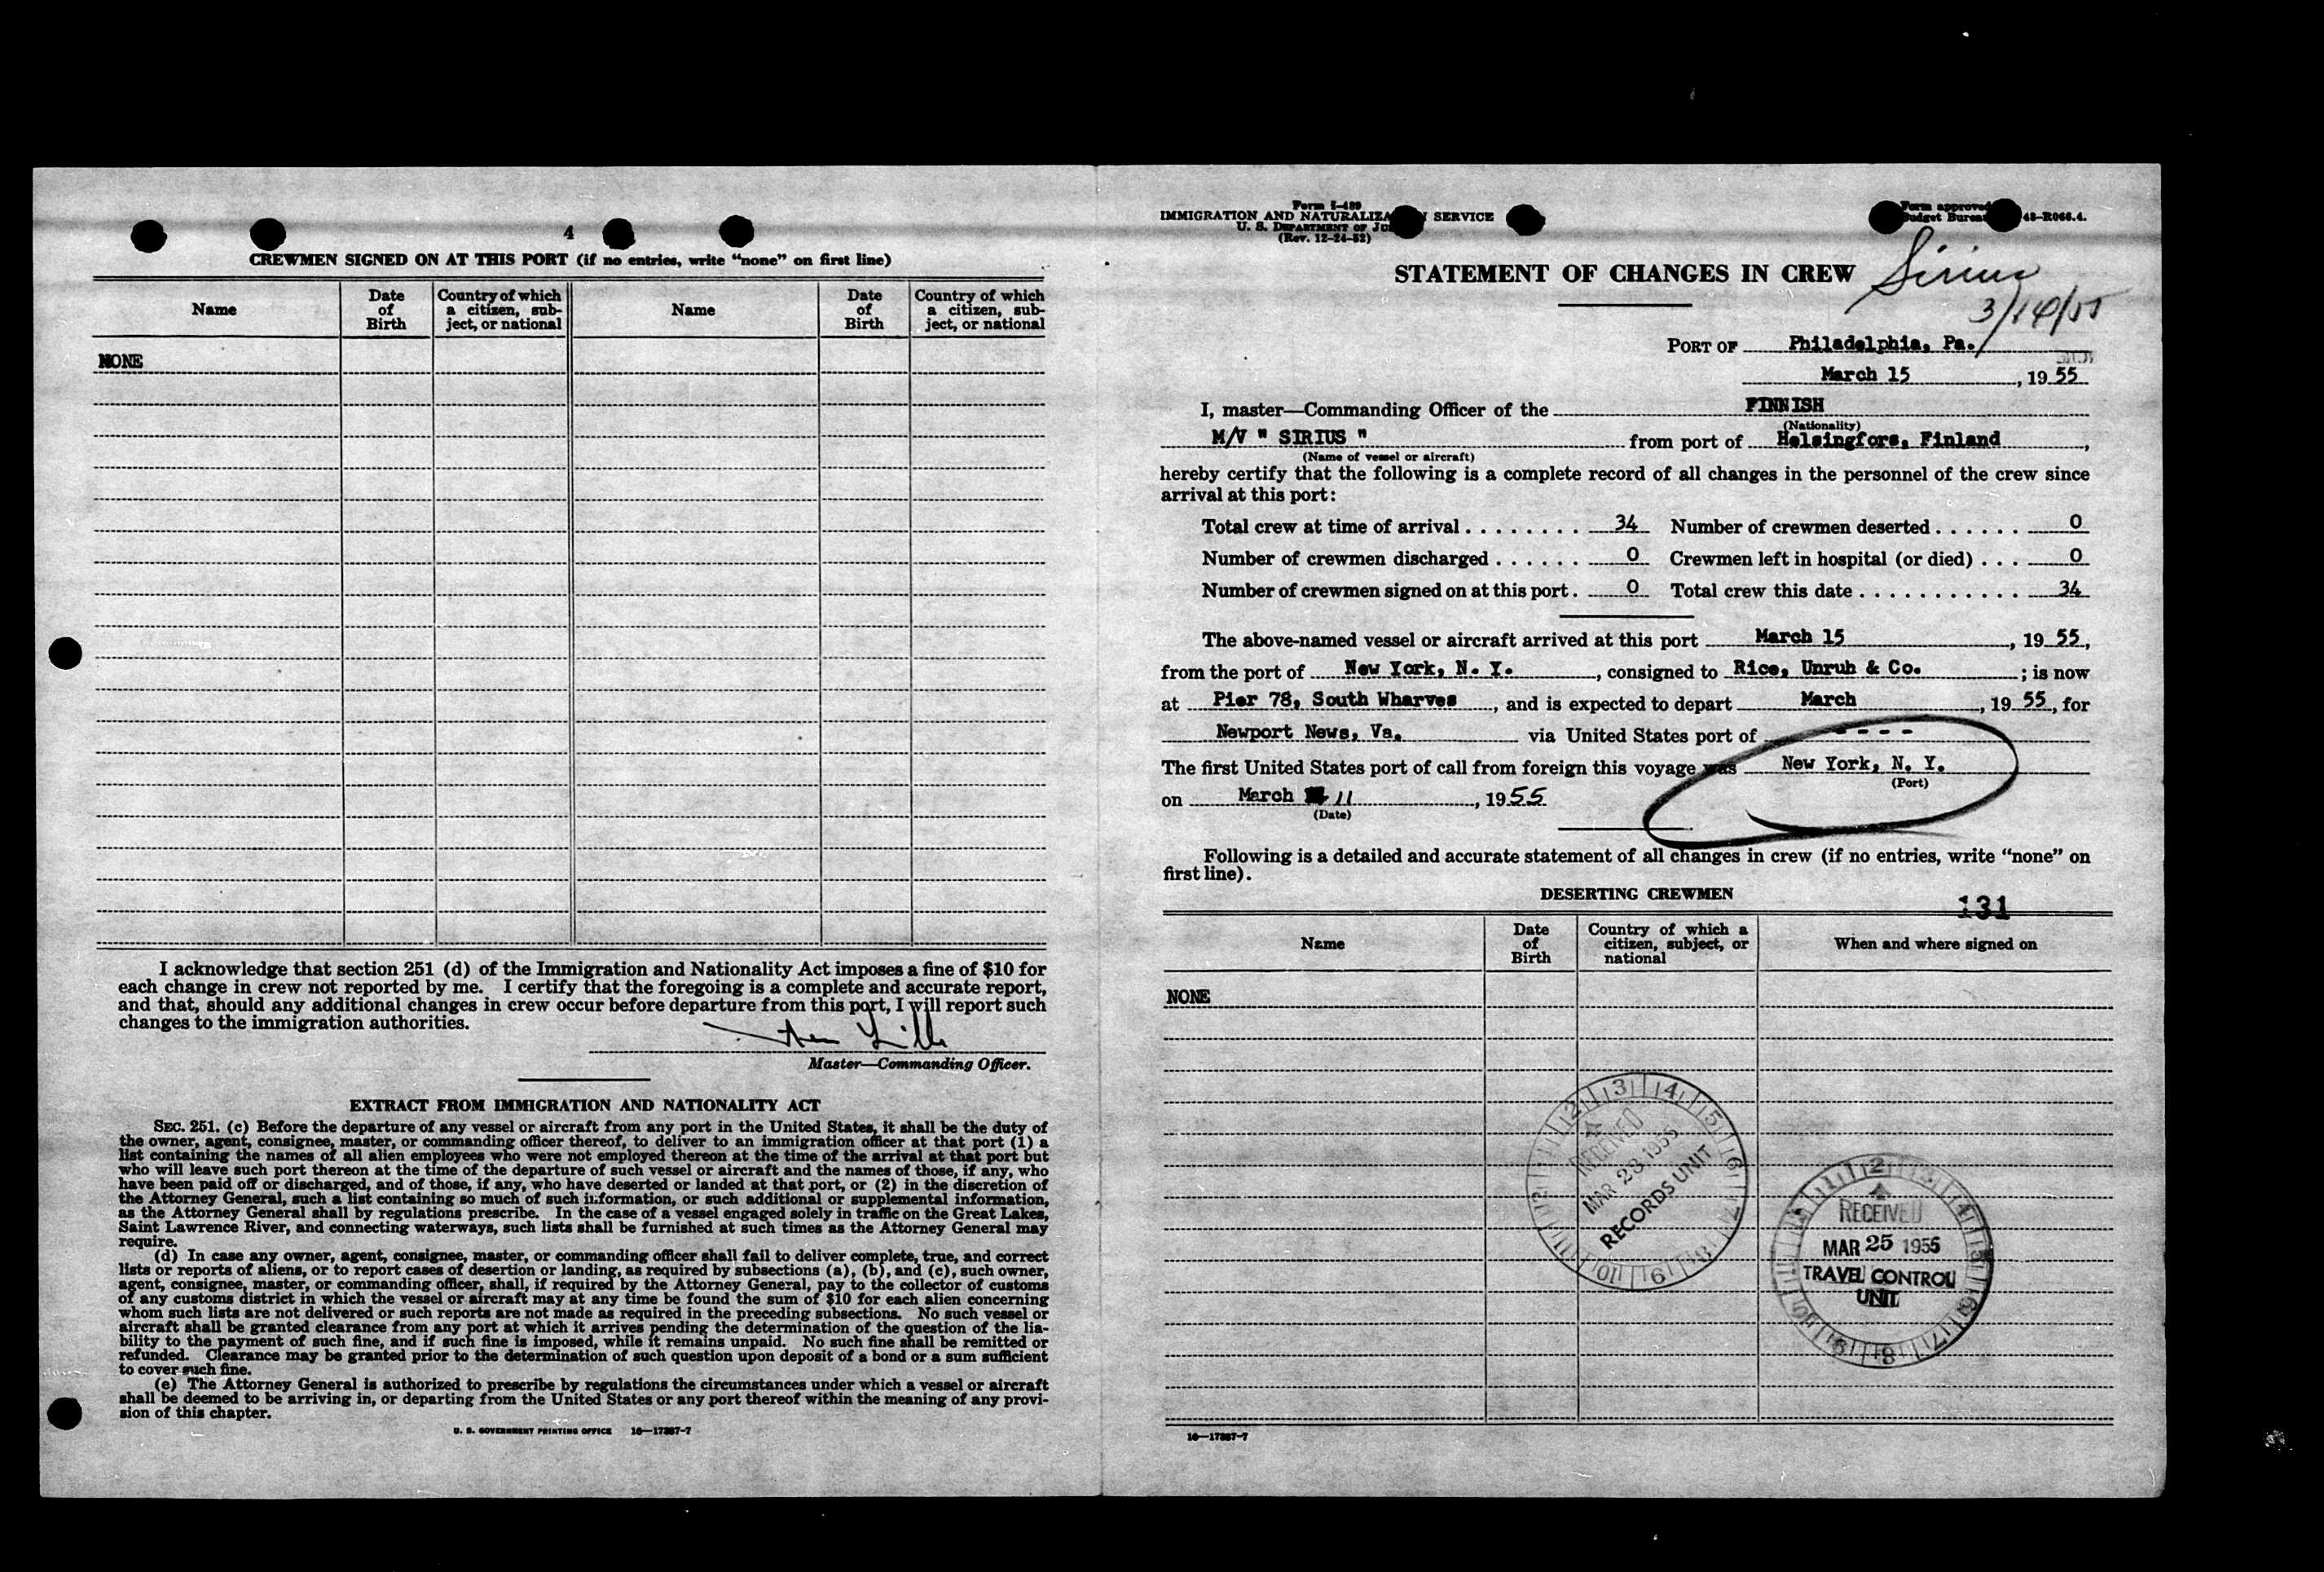 4
CREWMEN SIGNED ON AT THIS PORT (if no entries, write “none” on first line)
Name
Date of Birth
Country of which a citizen, subject, or national
Name
Date of Birth
Country of which a citizen, subject, or national
NONE
I acknowledge that section 251 (d) of the Immigration and Nationality Act imposes a fine of $10 for
each change in crew not reported by me. I certify that the foregoing is a complete and accurate report,
and that, should any additional changes in crew occur before departure from this port, I will report such
changes to the immigration authorities.
Master—Commanding Officer.
EXTRACT FROM IMMIGRATION AND NATIONALITY ACT
SEC. 251. (c) Before the departure of any vessel or aircraft from any port in the United States, it shall be the duty of
the owner, agent, consignee, master, or commanding officer thereof, to deliver to an immigration officer at that port (1) a
list containing the names of all alien employees who were not employed thereon at the time of the arrival at that port but
who will leave such port thereon at the time of the departure of such vessel or aircraft and the names of those, if any, who
have been paid off or discharged, and of those, if any, who have deserted or landed at that port, or (2) in the discretion of
the Attorney General, such a list containing so much of such information, or such additional or supplemental information,
as the Attorney General shall by regulations prescribe. In the case of a vessel engaged solely in traffic on the Great Lakes,
Saint Lawrence River, and connecting waterways, such lists shall be furnished at such times as the Attorney General may
require.
(d) In case any owner, agent, consignee, master, or commanding officer shall fail to deliver complete, true, and correct
lists or reports of aliens, or to report cases of desertion or landing, as required by subsections (a), (b), and (c), such owner,
agent, consignee, master, or commanding officer, shall, if required by the Attorney General, pay to the collector of customs
of any customs district in which the vessel or aircraft may at any time be found the sum of $10 for each alien concerning
whom such lists are not delivered or such reports are not made as required in the preceding subsections. No such vessel or
aircraft shall be granted clearance from any port at which it arrives pending the determination of the question of the lia-
bility to the payment of such fine, and if such fine is imposed, while it remains unpaid. No such fine shall be remitted or
refunded. Clearance may be granted prior to the determination of such question upon deposit of a bond or a sum sufficient
to cover such fine.
(e) The Attorney General is authorized to prescribe by regulations the circumstances under which a vessel or aircraft
shall be deemed to be arriving in, or departing from the United States or any port thereof within the meaning of any provi-
sion of this chapter.
U. S. GOVERNMENT PRINTING OFFICE 16—17887-7
Form I-489
IMMIGRATION AND NATURALIZA SERVICE
U. S. DEPARTMENT OF JU
(Rev. 12-24-52)
Form approved
Budget Burea 43-R066.4.
STATEMENT OF CHANGES IN CREW
Sirius
3/14/55
PORT OF Philadelphia, Pa.
March 15, 1955
I, master—Commanding Officer of the FINNISH
(Nationality)
M/V " SIRIUS " from port of Helsingfors, Finland,
(Name of vessel or aircraft)
hereby certify that the following is a complete record of all changes in the personnel of the crew since
arrival at this port:
Total crew at time of arrival ........ 34 Number of crewmen deserted ...... 0
Number of crewmen discharged ...... 0 Crewmen left in hospital (or died) ... 0
Number of crewmen signed on at this port . 0 Total crew this date ........... 34
The above-named vessel or aircraft arrived at this port March 15, 1955,
from the port of New York, N. Y., consigned to Rice, Unruh & Co. ; is now
at Pier 78, South Wharves, and is expected to depart March, 1955, for
Newport News, Va. via United States port of - - - -
The first United States port of call from foreign this voyage was New York, N. Y.
(Port)
on March 11, 1955
(Date)
Following is a detailed and accurate statement of all changes in crew (if no entries, write “none” on
first line).
DESERTING CREWMEN
131
Name
Date of Birth
Country of which a citizen, subject, or national
When and where signed on
NONE
RECEIVED
MAR 28 1955
RECORDS UNIT
RECEIVED
MAR 25 1955
TRAVEL CONTROL
UNIT
16—17887-7